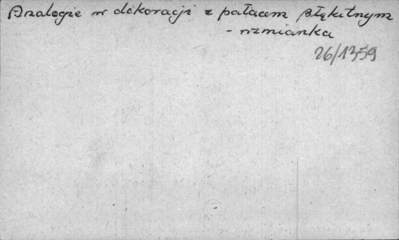 Analogie w dekoracji z pałacem błękitnym
- wzmianka
26/1359